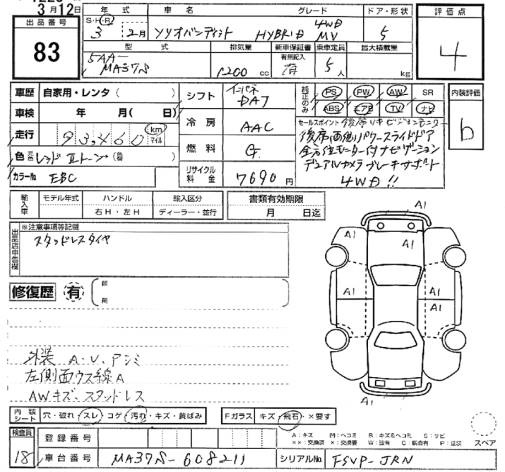 3月12日
出品番号
83
年式
車名
グレード
ドア・形状
評価点
S・H・R
3年 2月
ソリオバンディット HYBRID 4WD MV
5
4
型式
排気量
新車保証書
乗車定員
最大積載量
有無記入
5AA-MA37S
1200 cc
有
5人
kg
車歴 自家用・レンタ( )
車検 年 月( )日
走行 93,460 km マイル
色 レッド Ⅱトーン( )
カラーNo EBC
シフト インパネDA7
冷房 AAC
燃料 G
リサイクル料金 7690円
純正のみ
PS PW AW SR
ABS エアB TV ナビ
セールスポイント
後席両側パワースライドドア
全方位モニター付ナビゲーション
デュアルカメラブレーキサポート
4WD!!
内装評価
b
輸入車
モデル年式
ハンドル
輸入区分
書類有効期限
右H・左H
ディーラー・並行
月 日迄
※注意事項等記載
スタッドレスタイヤ
修復歴 有
A1
A1
A1
A1
A1
外装 A・U・アシミ
左側面ウス線A
AWキズ・スタッドレス
内装シート 穴・破れ・スレ・コゲ・汚れ・キズ・黄ばみ
Fガラス キズ・飛石・×要す
スペア
検査員
18
登録番号
車台番号 MA37S-608211
シリアルNo FSVP-JRN